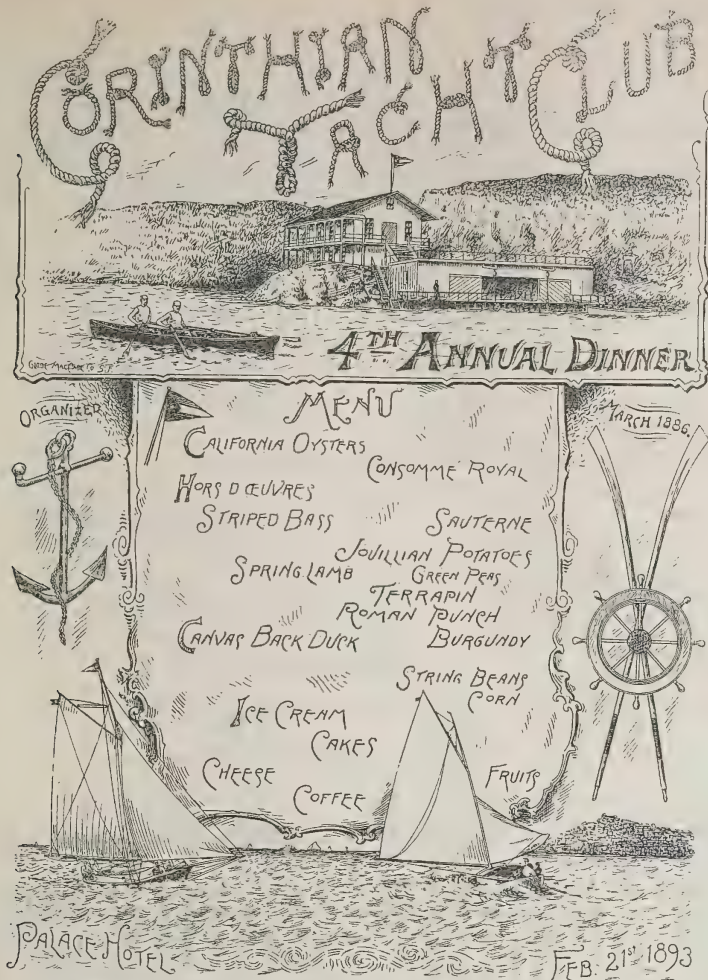 CORINTHIAN YACHT CLUB
4TH ANNUAL DINNER
ORGANIZED
MARCH 1886.
MENU
CALIFORNIA OYSTERS
CONSOMMÉ ROYAL
HORS D ŒUVRES
STRIPED BASS SAUTERNE
JOUILLIAN POTATOES
SPRING LAMB GREEN PEAS
TERRAPIN
ROMAN PUNCH
CANVAS BACK DUCK BURGUNDY
STRING BEANS
CORN
ICE CREAM
CAKES
CHEESE FRUITS
COFFEE
PALACE HOTEL FEB. 21ST 1893